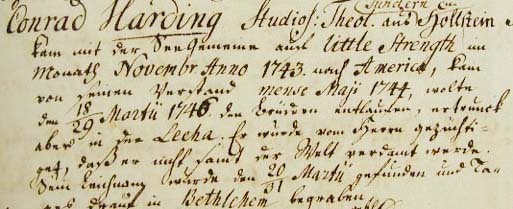 Conrad Harding Studios: Theol. aus Holstein
kam mit der See Gemeine auf little Strength im
Monath Novembr Anno 1743. nach America, kam
von seinen Verstand mense Maji 1744, wolte
den 18/29 Martii 1746 den Brüdern entlaufen, ertrunck
aber in der Lecha. Er wurde vom Herrn gezüchti-
get, daß er nicht samt der Welt verdamt werde.
Sein Leichnam wurde den 20/31 Martii gefunden und Ta-
ges drauf in Bethlehem begraben.